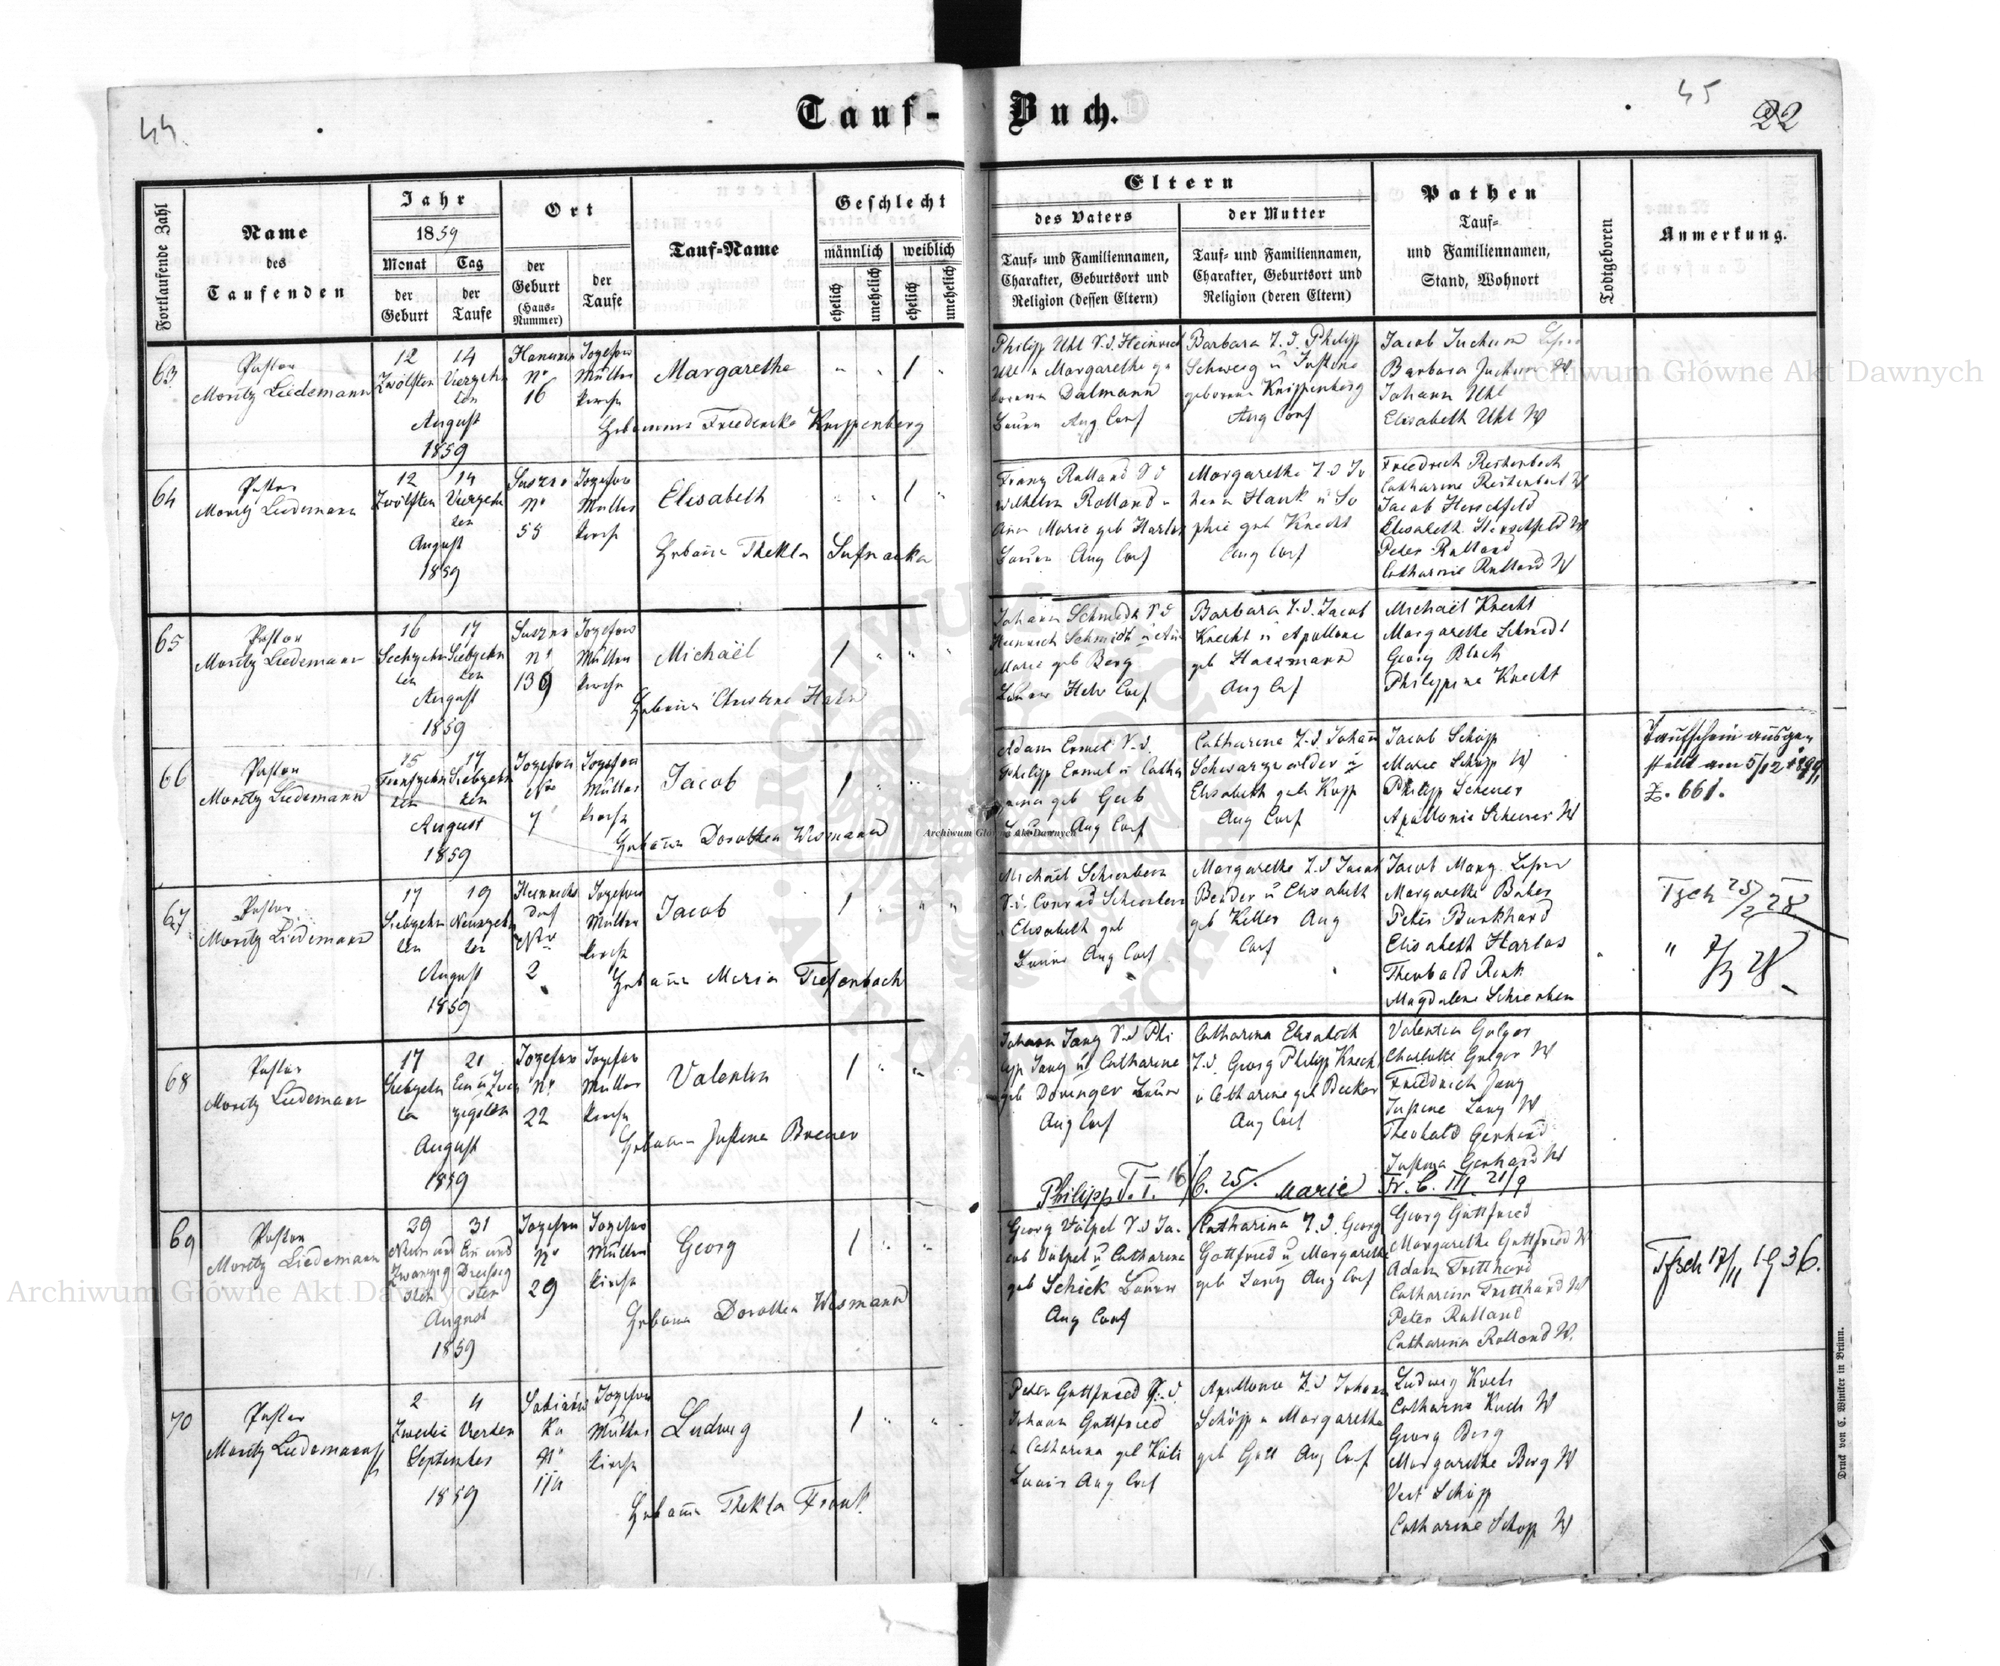 44.
Tauf-
Buch.
45
22
Fortlaufende Zahl
Name
des
Taufenden
Jahr
1859
Monat
Tag
der
Geburt
der
Taufe
Ort
der
Geburt
(Haus-
Nummer)
der
Taufe
Tauf-Name
Geschlecht
männlich
weiblich
ehelich
unehelich
ehelich
unehelich
Eltern
des Vaters
der Mutter
Tauf- und Familiennamen,
Charakter, Geburtsort und
Religion (dessen Eltern)
Tauf- und Familiennamen,
Charakter, Geburtsort und
Religion (deren Eltern)
Pathen
Tauf-
und Familiennamen,
Stand, Wohnort
Todtgeboren
Anmerkung.
63
Pastor
Moritz Liedemann
12
Zwölften
14
Vierzehn
ten
August
1859
No
16
Jozefow
Mutter
kirche
Margaretha
1
Hebamme Friedericka Krippenberg
Philipp Uhl S. d. Heinrich
Uhl u Margaretha ge
borene Dalmann
Bauern Aug Conf
Barbara T. d. Philipp
Schweig u Justine
geborene Krippenberg
Aug Conf
Jacob Juchum
Barbara Juchum W
Johann Uhl
Elisabeth Uhl W
64
Pastor
Moritz Liedemann
12
Zwölften
14
Vierzehn
ten
August
1859
Suszno
No
55
Jozefow
Mutter
kirche
Elisabeth
1
Hebame Thekla
Franz Rolland S d
Wilhelm Rolland u
Ana Marie geb Harlos
Bauern Aug Conf
Margaretha T. d Jo
hann Hank u So
phie geb Knecht
Aug Conf
Friedrich Reitenbach
Catharine Reitenbach W
Jacob Herschfeld
Elisabeth Herschfeld W
Peter Rolland
Catharine Rolland W
65
Pastor
Moritz Liedemann
16
Sechzehn
ten
17
Siebzehn
ten
August
1859
Suszno
No
139
Jozefow
Mutter
kirche
Michaël
1
Hebame Christine Hahn
Johann Schmidt S d
Heinrich Schmidt u An
Marie geb Berg
Bauern Helv Conf
Barbara T. d. Jacob
Knecht u Apollone
geb Hassmann
Aug Conf
Michaël Knecht
Margarethe Schmidt
Georg Bloch
Philippina Knecht
66
Pastor
Moritz Liedemann
15
Fünfzehn
ten
17
Siebzehn
ten
August
1859
Jozefow
No
7
Jozefow
Mutter
kirche
Jacob
1
Hebame Dorothea Wismann
Adam Ermel S. d.
Philipp Ermel u Catha
rina geb Geib
Bauern Aug Conf
Catharina T. d. Johann
Schwarzwälder u
Elisabeth geb Kopp
Aug Conf
Jacob Schöpp
Marie Schöpp W
Philipp Scherer
Apollonia Scherer W
Taufschein ausge
stellt am 5/12 1899
Z. 661.
67
Pastor
Moritz Liedemann
17
Siebzehn
ten
19
Neunzehn
ten
August
1859
Heinrichs
dorf
No
2
Jozefow
Mutter
kirche
Jacob
1
Hebame Maria Tiefenbach
Michaël Schienbein
S. d. Conrad Schienbein
u Elisabeth geb
Bauern Aug Conf
Margaretha T. d Jacob
Bender u Elisabeth
geb Keller Aug
Conf
Jacob Manz
Margaretha Baker
Peter Burkhard
Elisabeth Harlos
Theobald Rink
Magdalena Schienbein
Tsch 25/2 28
" 7/3 28
68
Pastor
Moritz Liedemann
17
Siebzehn
ten
21
Ein u Zwan
zigsten
August
1859
Jozefow
No
22
Jozefow
Mutter
kirche
Valentin
1
Hebame Justina Breuer
Johann Jany S. d Phi
lipp Jany u Catharine
geb Doringer Bauern
Aug Conf
Catharina Elisabeth
T. d. Georg Philipp Knecht
u Catharine geb Becker
Aug Conf
Valentin Golger
Charlotte Golger W
Friedrich Jany
Justine Jany W
Theobald Gerhard
Justina Gerhard W
Philipp T. I. 16/6. 25. Marie Fr. C. III 21/9
69
Pastor
Moritz Liedemann
29
Neun und
Zwanzig
sten
31
Ein und
Dreissig
sten
August
1859
Jozefow
No
29
Jozefow
Mutter
kirche
Georg
1
Hebame Dorothea Wismann
Georg Völpel S. d Ja
cob Völpel u Catharina
geb Schick Bauern
Aug Conf
Catharina T. d. Georg
Gottfried u Margaretha
geb Jany Aug Conf
Georg Gottfried
Margaretha Gottfried W
Adam Tritthard
Catharina Tritthard W
Peter Rolland
Catharina Rolland W.
Tfsch 17/11 1936.
70
Pastor
Moritz Liedemann
2
Zweiten
4
Vierten
September
1859
Sabinów
ka
No
11a
Jozefow
Mutter
kirche
Ludwig
1
Hebame Thekla Frank.
Peter Gottfried S. d
Johann Gottfried
u Catharina geb
Bauern Aug Conf
Apollonia T. d Johann
Schöpp u Margaretha
geb Gott Aug Conf
Ludwig Koch
Catharina Koch W
Georg Berg
Margaretha Berg W
Veit Schöpp
Catharine Schopp W
Druck von C. Winiker in Brünn.
Archiwum Główne Akt Dawnych
Archiwum Główne Akt Dawnych
Archiwum Główne Akt Dawnych